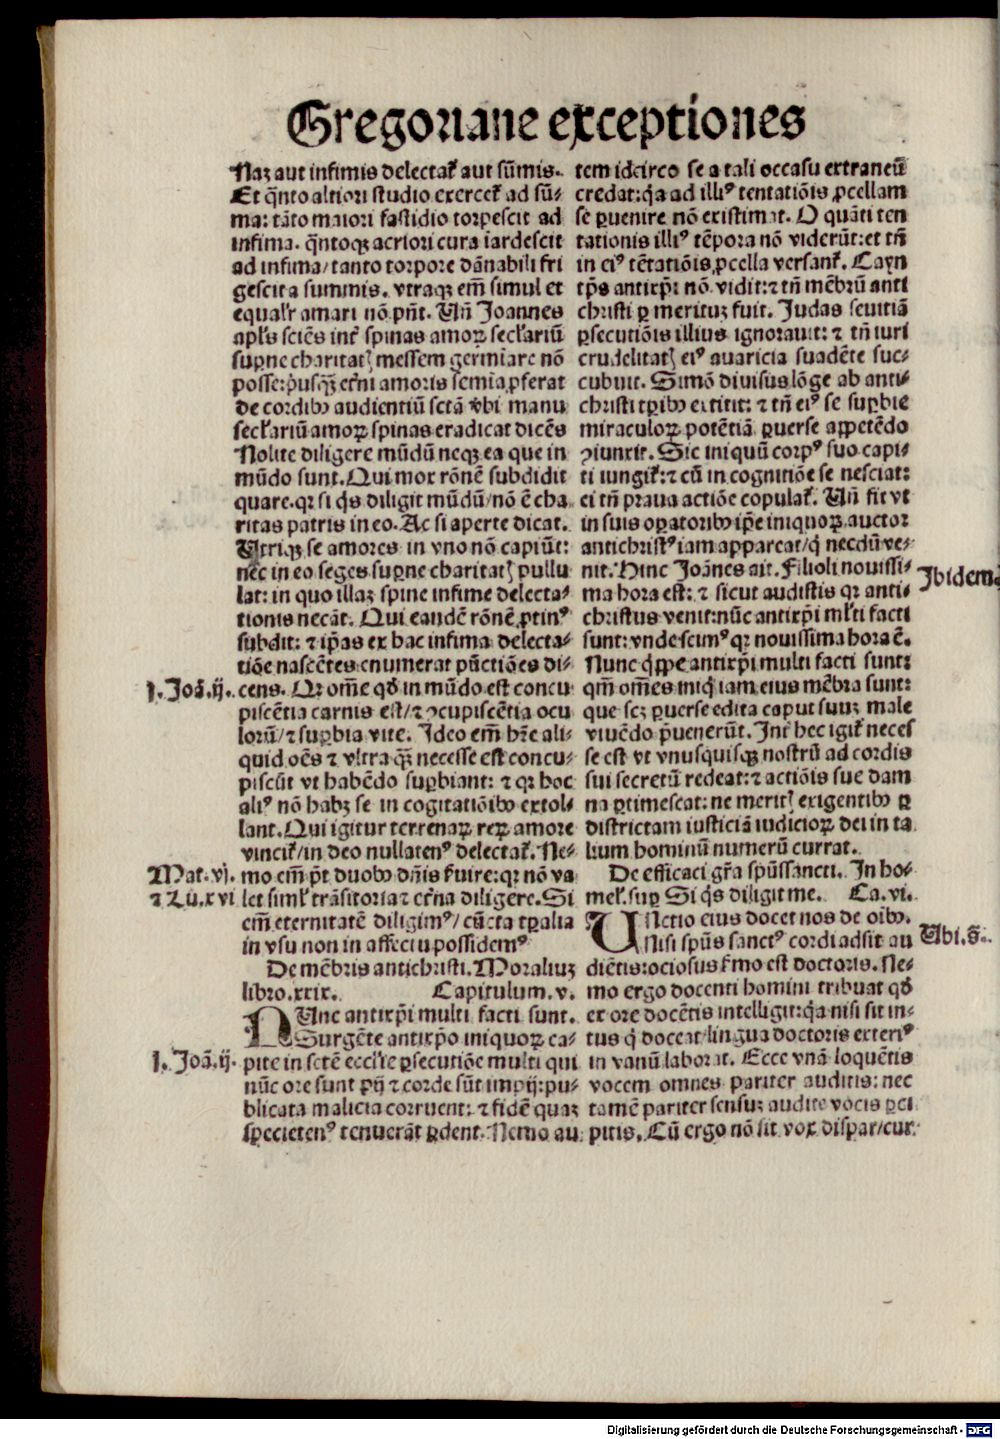 Gregoriane exceptiones
Naꝫ aut infimis delectat᷑ aut sūmis.
Et q̄nto altiori studio exercet᷑ ad sū-
ma: tāto maiori fastidio torpescit ad
infima. q̄ntoqꝫ acriori cura īardescit
ad infima/tanto torpore dānabili fri
gescit a summis. vtraqꝫ em̄ simul et
equalr̄ amari nō pn̄t. Vn̄ Joannes
apl̓s sciēs int̓ spinas amoꝝ secl̓ariū
suꝑne charitatꝭ messem germīare nō
posse: pͥusqꝫ̄ et̓ni amoris semīa ꝓferat
de cordibꝰ audientiū sctā v̓bi manu
secl̓ariū amoꝝ spinas eradicat dicēs
Nolite diligere mūdū neqꝫ ea que in
mūdo sunt. Qui mox rōnē subdidit
quare. qꝛ si qͥs diligit mūdū/nō ē cha
ritas patris in eo. Ac si aperte dicat.
Vtriqꝫ se amores in vno nō capiūt:
nec in eo seges suꝑne charitatꝭ pullu
lat: in quo illaꝫ spine infime delecta-
tionis necāt. Qui eandē rōnē ꝓtinꝰ
subdit: ⁊ ip̄as ex hac infima delecta-
tiōe nascētes enumerat pūctiōes di-
j. Joā. ij. cens. Qꝛ om̄e qd̓ in mūdo est concu
piscētia carnis est/⁊ ꝯcupiscētia ocu
lorū/⁊ suꝑbia vite. Ideo em̄ hr̄e ali-
quid oēs ⁊ vltra qꝫ̄ necesse est concu-
piscūt vt habēdo suꝑbiant: ⁊ qꝛ hoc
aliꝰ nō habꝫ se in cogitatiōibꝰ extol-
lant. Qui igitur terrenaꝝ reꝝ amore
vincit᷑/in deo nullatenꝰ delectat᷑. Ne-
Mat. vj. mo em̄ pt̄ duobꝰ dn̄is s̓uire: qꝛ nō va
⁊ Lu. xvi let siml̓ trāsitoria ⁊ et̓na diligere. Si
em̄ eternitatē diligimꝰ/cūcta tꝑalia
in vsu non in affectu possidemꝰ
De mēbris antichristi. Moraliuꝫ
libro. xxix. Capitulum. v.
NUnc antixp̄i multi facti sunt.
Surgēte antixp̄o iniquoꝝ ca-
j. Joā. ij. pite in sctē eccl̓ie ꝑsecutiōe multi qui
nūc ore sunt pij ⁊ corde sūt impij: pu-
blicata malicia corruent: ⁊ fidē quaꝫ
specietenꝰ tenuerāt ꝑdent. Nemo au
tem idcirco se a tali occasu extraneū
credat: qͣa ad illiꝰ tentatiōis ꝓcellam
se ꝑuenire nō existimat. O quāti ten
tationis illiꝰ tēpora nō viderūt: et tn̄
in eiꝰ tētatiōis ꝓcella versant᷑. Cayn
tp̄s antixp̄i nō vidit: ⁊ tn̄ mēbrū anti
christi ꝑ merituꝫ fuit. Judas seuitiā
ꝑsecutiōis illius ignorauit: ⁊ tn̄ iuri
crudelitatꝭ eiꝰ auaricia suadēte suc-
cubuit. Simō diuisus lōge ab anti-
christi tꝑibꝰ extitit: ⁊ tn̄ eiꝰ se suꝑbie
miraculoꝝ potētiā ꝑuerse appetēdo
ꝯiunxit. Sic iniquū corpꝰ suo capi-
ti iungit᷑: ⁊ cū in cognitiōe se nesciat:
ei tn̄ praua actiōe copulat᷑. Vn̄ fit vt
in suis oꝑatoribꝰ ip̄e iniquoꝝ auctor
antichristꝰ iam appareat/qͥ necdū ve-
nit. Hinc Joānes ait. Filioli nouissi- Ibidem
ma hora est: ⁊ sicut audistis qꝛ anti-
christus venit: nūc antixp̄i ml̓ti facti
sunt: vnde scimꝰ qꝛ nouissima hora ē.
Nunc qͥppe antixp̄i multi facti sunt:
qm̄ om̄es iniqͥ iam eius mēbra sunt:
que scꝫ ꝑuerse edita caput suuꝫ male
viuēdo p̄uenerūt. Int̓ hec igit᷑ neces
se est vt vnusquisqꝫ nostrū ad cordis
sui secretū redeat: ⁊ actiōis sue dam
na ꝑtimescat: ne meritꝭ exigentibꝰ ꝑ
districtam iusticiā iudicioꝝ dei in ta
lium hominū numerū currat.
De efficaci gr̄a spūssancti. In ho-
mel̓. suꝑ Si qͥs diligit me. Ca. vi.
UNctio eius docet nos de oibꝰ.
Nisi spūs sanctꝰ cordi adsit au Vbi. s̄.
diētis: ociosus s̓mo est doctoris. Ne-
mo ergo docenti homini tribuat qd̓
ex ore docētis intelligit: qͣa nisi sit in-
tus qͥ doceat/lingua doctoris exteriꝰ
in vanū laborat. Ecce vnā loquētis
vocem omnes pariter auditis: nec
tamē pariter sensuꝫ audite vocis ꝑci
pitis. Cū ergo nō sit vox dispar/cur
Digitalisierung gefördert durch die Deutsche Forschungsgemeinschaft - DFG